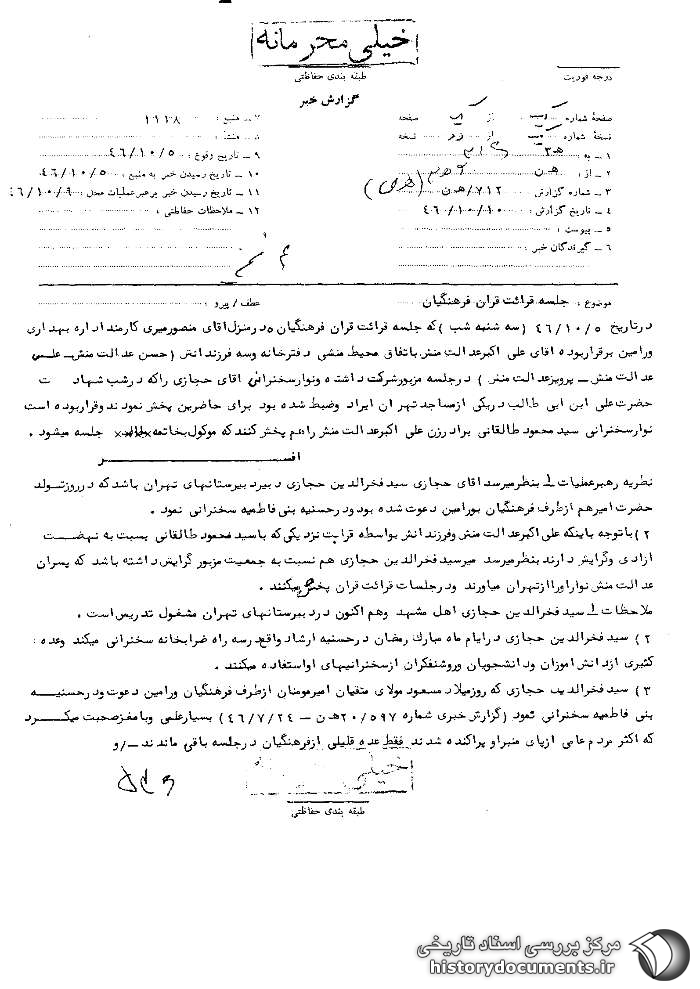 خیلی محرمانه
طبقه بندی حفاظتی
درجه فوریت
گزارش خبر
صفحهٔ شماره یک از یک صفحه
نسخهٔ شماره از نسخه
۱ ـ به
۲ ـ از: ه‍ن
۳ ـ شماره گزارش ۷۱۲/ه‍ن
۴ ـ تاریخ گزارش: ۴۶۰/۱۰/۱۰
۵ ـ پیوست:
۶ ـ گیرندگان خبر:
۷ـ منبع: ۱۱۲۸
۸ ـ منشأ:
۹ ـ تاریخ وقوع: ۴۶/۱۰/۵
۱۰ ـ تاریخ رسیدن خبر به منبع: ۴۶/۱۰/۵
۱۱ ـ تاریخ رسیدن خبر برهبرعملیات محل: ۴۶/۱۰/۹
۱۲ ـ ملاحظات حفاظتی:
موضوع: جلسه قرائت قران فرهنگیان
عطف / پیرو:
درتاریخ ۴۶/۱۰/۵ (سه شنبه شب) که جلسه قرائت قران فرهنگیان درمنزل اقای منصورمیری کارمند اداره بهداری
ورامین برقراربوده اقای علی اکبرعدالت منش باتفاق محیط منشی دفترخانه وسه فرزندانش (حسن عدالت منش ـ علی
عدالت منش ـ پرویزعدالت منش) درجلسه مزبورشرکت داشته ونوارسخنرانی اقای حجازی راکه درشب شهادت
حضرت علی ابن ابی طالب دریکی ازمساجد تهران ایراد وضبط شده بود برای حاضرین پخش نمودند وقراربوده است
نوارسخنرانی سید محمود طالقانی برادرزن علی اکبرعدالت منش راهم پخش کنند که موکول بخاتمه جلسه میشود.
افسر
نظریه رهبرعملیات ۱ـ بنظرمیرسد اقای حجازی سید فخرالدین حجازی دبیردبیرستانهای تهران باشد که درروزتولد
حضرت امیرهم ازطرف فرهنگیان بورامین دعوت شده بود ودرحسنیه بنی فاطمیه سخنرانی نمود.
۲) باتوجه باینکه علی اکبرعدالت منش وفرزندانش بواسطه قرابت نزدیکی که باسید محمود طالقانی نسبت به نهضت
ازادی وگرایش دارند بنظرمیرسد میرسید فخرالدین حجازی هم نسبت به جمعیت مزبورگرایش داشته باشد که پسران
عدالت منش نوار اورا ازتهران میاورند ودرجلسات قرائت قران پخش میکنند.
ملاحظات ۱ـ سید فخرالدین حجازی اهل مشهد وهم اکنون دردبیرستانهای تهران مشغول تدریس است.
۲) سید فخرالدین حجازی درایام ماه مبارک رمضان درحسنیه ارشاد واقع درسه راه ضرابخانه سخنرانی میکند وعده
کثیری ازدانش اموزان ودانشجویان وروشنفکران ازسخنرانیهای اواستفاده میکنند.
۳) سید فخرالدین حجازی که روزمیلاد مسعود مولای متقیان امیرمومنان ازطرف فرهنگیان ورامین دعوت ودرحسنیه
بنی فاطمیه سخنرانی نمود (گزارش خبری شماره ۲۰/۵۹۷ه‍ن ـ ۴۶/۷/۲۴) بسیارعلمی وبامغزصحبت میکرد
که اکثر مردم عامی ازپای منبراو پراکنده شدند فقط عده قلیلی ازفرهنگیان درجلسه باقی ماندند ـ/و
خیلی محرمانه
طبقه بندی حفاظتی
مرکز بررسی اسناد تاریخی
historydocuments.ir